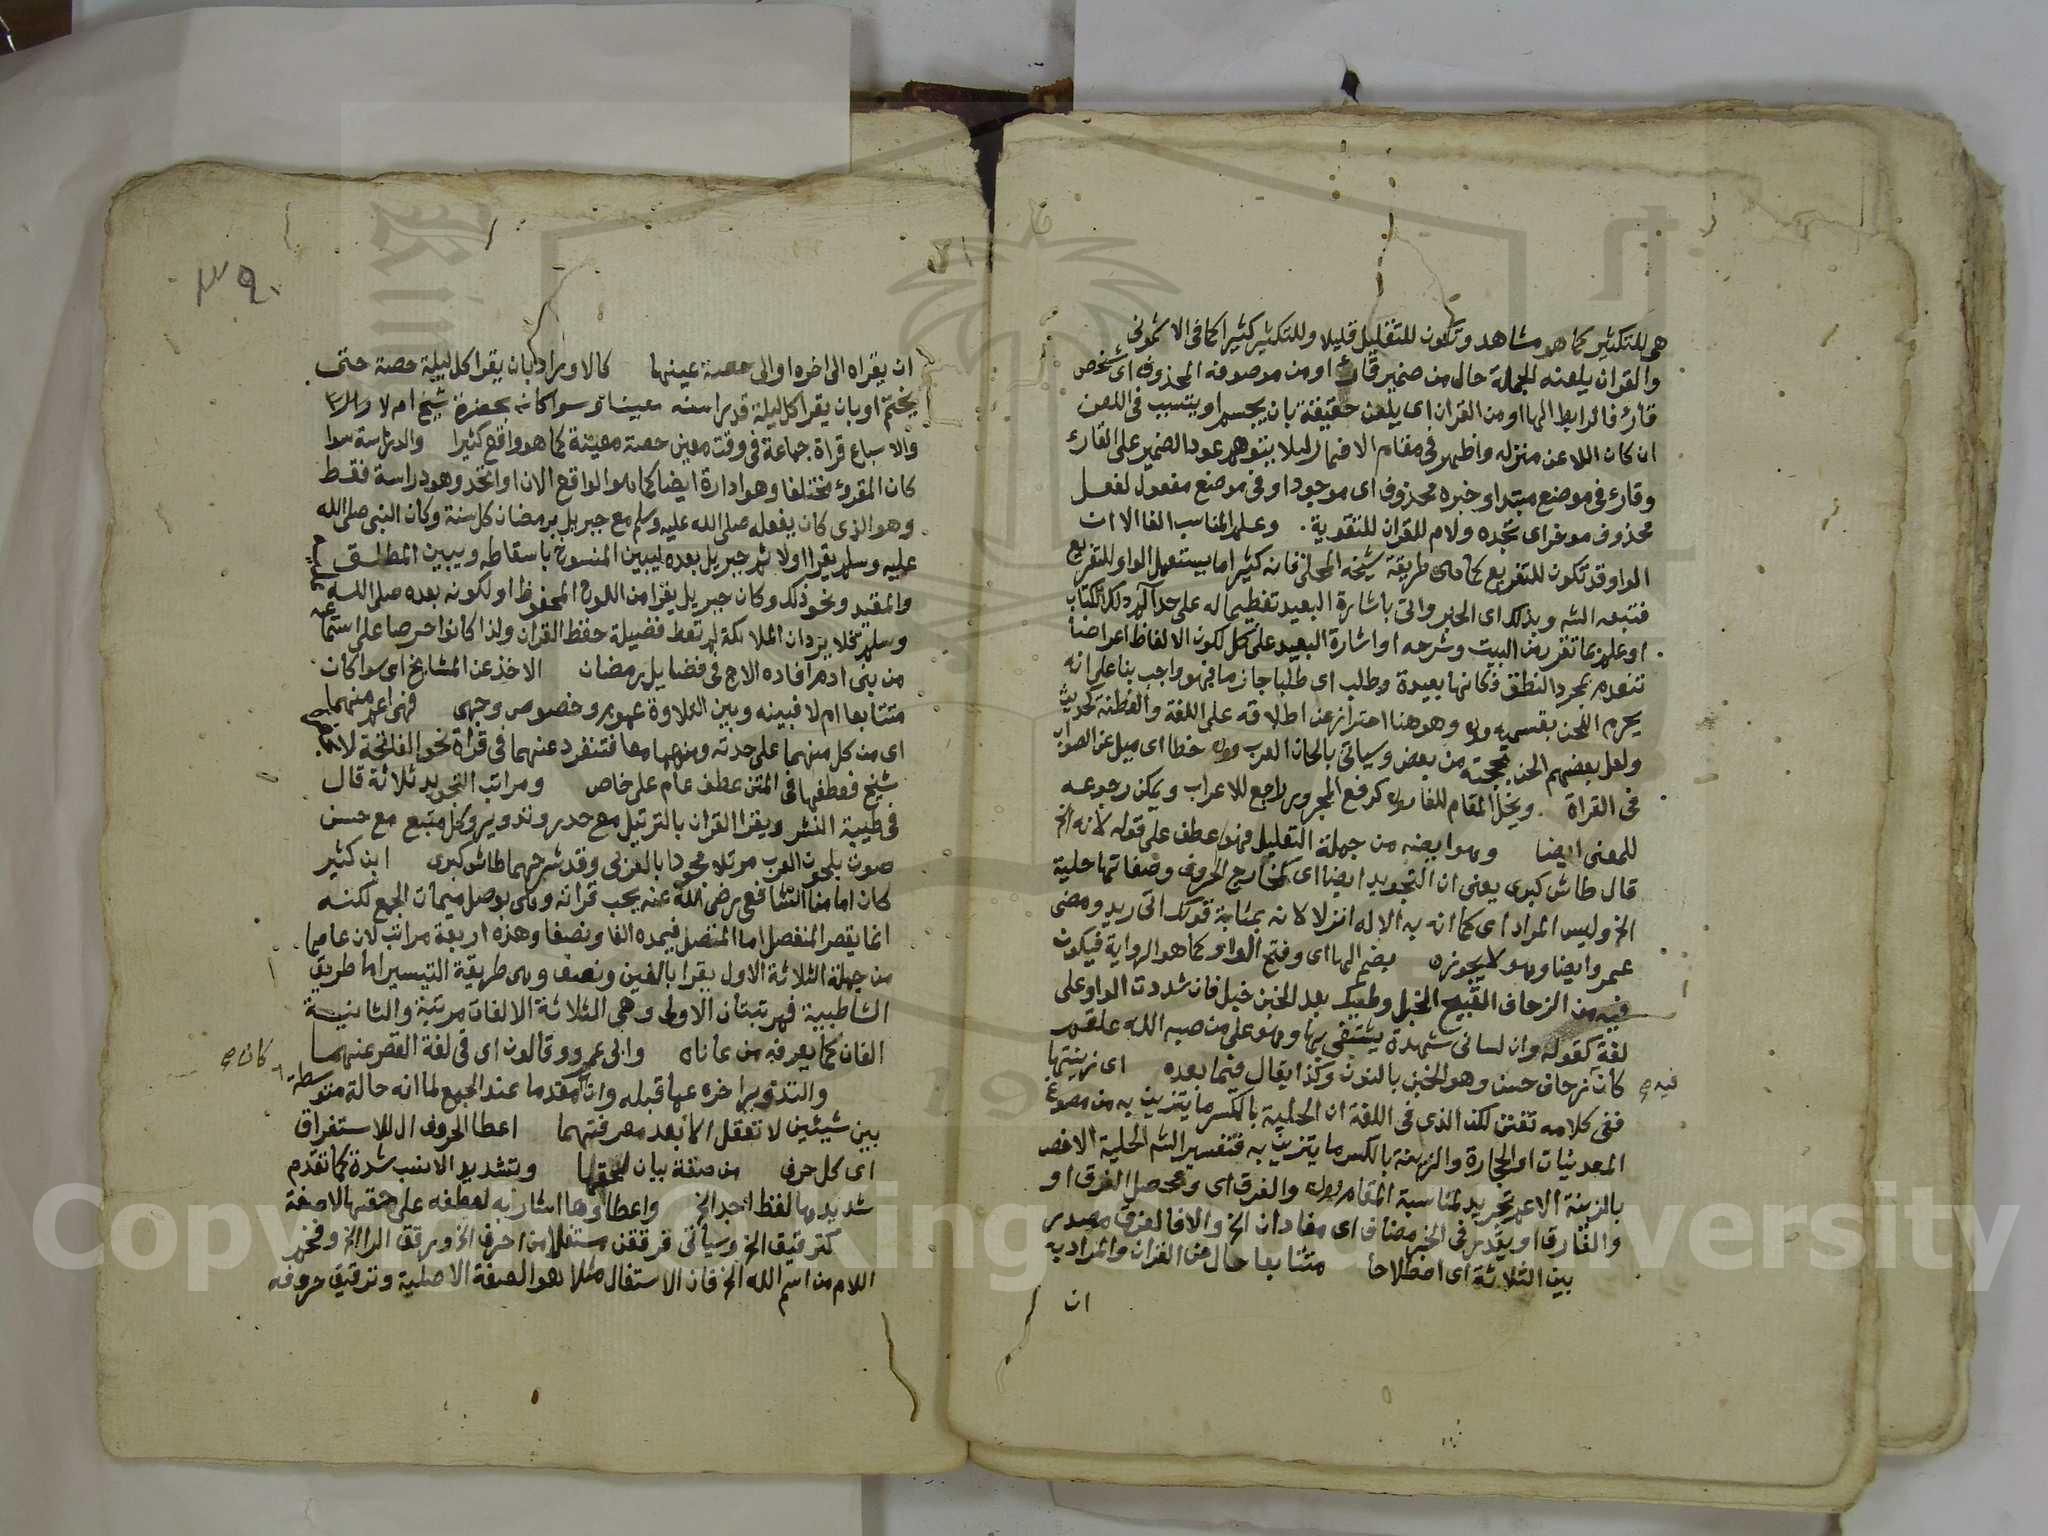 هي للتكثير كما هو مشاهد وتكون للتقليل قليلا وللتكثير كثيرا كما في الاشموني
والقران يلعنه الجملة حال من ضمير قارئ او من موصوفه المحذوف اي شخص
قارئ فالرابط الهاا ومن القران اي يلعن حقيقة بان يجسم او يتسبب في اللعن
ان كان اللاعن منزله واظهر في مقام الاضمار ليلا يتوهم عود الضمير على القارئ
وقارئ في موضع مبتدا وخبره محذوف اي موجود او في موضع مفعول لفعل
محذوف موخر اي تجده ولام للقران للتقوية . وعلم المناسب الفا الا ان
الواو قد تكون للتفريع كما هي طريقة شيخه المحلي فانه كثيرا ما يستعمل الواو للتفريع
فتبعه الشه وبذلك اي الخبر واتى باشارة البعيد تعظيما له على حد الم ذلك الكتاب
او علم مما تقرر من البيت وشرحه او اشارة البعيد على كل لكون الالفاظ اعراضا
تنعدم بمجرد النطق فكانها بعيدة وطلب اي طلبا جازما فهو واجب بنا على انه
يحرم اللحن بقسميه وهو هنا احتراز عن اطلاقه على اللغة والفطنة كحديث
ولعل بعضهم الحن بحجته من بعض وسياتي بالحان العرب خطا اي ميل عن الصواب
في القراة . ويخل المقام للفا كرفع المجرور راجع للاعراب ويمكن رجوعه
للمعنى ايضا وهو ايضه من جملة التعليل فهو عطف على قوله لانه الخ
قال طاش كبرى يعني ان التجويد ايضا اي كمخارج الحروف وصفاتها حلية
الخ وليس المراد اي كما انه به الاله انزلا لانه بمثابة قولك اتى زيد ومضى
عمرو ايضا وهو لا يجوز بضم الهااي وفتح الواو كما هو الرواية فيكون
فيه من الزحاف القبيح الخبل وطيك بعد الخبن خبل فان شددت الواو على
لغة كقوله وان لساني شهدة يشتفى بها وهو على من صبه الله علقم
كان زحاف حسن وهو الخبن بالنون وكذا يقال فيما بعده اي زينتها
فيه ص
ففي كلامه تفنن لكن الذي في اللغة ان الحلية بالكسر ما يتزين به من مصوغ
المعدنيات او الحجارة والزينة بالكسر ما يتزين به فتفسير الشه الحلية الاخص
بالزينة الاعم تجريد لمناسبة المقام والفرق اي ومحصل الفرق او
والفارق او يقدر في الخبر مضاف اي مفاد ان الخ والا فالفرق مصدر
بين الثلاثة اي اصطلاحا متتابعا حال من القران والمراد به
ان
٣٩
ان يقراه الى اخره او الى حصة عينها كالاوراد بان يقرا كل ليلة حصة حتى
يختم او بان يقرا كل ليلة قدرا منه معينا وسوا كان بحضرة شيخ ام لا
والاسباع قراة جماعة في وقت معين حصة معينة كما هو واقع كثيرا والدراسة سوا
كان المقروء مختلفا وهو ادارة ايضا كما هو الواقع الان او اتحد وهو دراسة فقط
وهو الذي كان يفعله صلى الله عليه وسلم مع جبريل برمضان كل سنة وكان النبي صلى الله
عليه وسلم يقرا اولا ثم جبريل بعده ليبين المنسوخ باسقاطه ويبين المطلق
والمقيد ونحو ذلك وكان جبريل يقرا من اللوح المحفوظ او لكونه بعده صلى الله
وسلم فلا يرد ان الملائكة لم تعط فضيلة حفظ القران ولذا كانوا حرصا على استماعه
من بني ادم افاده الاج في فضايل رمضان الاخذ عن المشايخ اي سوا كان
متتابعا ام لا فبينه وبين التلاوة عموم وخصوص وجهي فهي اعم منهما
اي من كل منهما على حدته ومنهما معا فتنفرد عنهما في قراة نحو الفاتحة لا
شيخ فعطفها في المتن عطف عام على خاص ومراتب التجويد ثلاثة قال
في طيبة النشر ويقرا القران بالترتيل مع حدر وتدوير وكل متبع مع حسن
صوت بلحون العرب مرتلا مجودا بالعربي وقد شرحهما طاش كبرى ابن كثير
كان امامنا الشافعي رضي الله عنه يحب قراته وهي بوصل ميمات الجمع لكنه
انما يقصر المنفصل اما المتصل فيمده الفا ونصفا وهذه اربعة مراتب لان عاصما
من جملة الثلاثة الاول يقرا بالفين ونصف وهي طريقة التيسير اما طريق
الشاطبية فمرتبتان الاولى وهي الثلاثة الالفات مرتبة والثانية
الفان كما يعرفه من عاناه وابي عمرو وقالون اي في لغة القصر عنهما
والتدوير اخره عما قبله وان كان مقدما عند الجمع لما انه حالة متوسطة
كان ص
بين شيئين لا تعقل الا بعد معرفتهما اعطا الحروف ال للاستغراق
اي كل حرف من صفة بيان لحقها وتشديد الانسب شدة كما تقدم
شديدها لفظ اجد الخ واعطاؤها اشار به لعطفه على حقها لا صفة
كترقيق الخ وسياتي فرققن مستفلا من احرف الخ ورقق الرا الخ وفخم
اللام من اسم الله الخ فان الاستفال مثلا هو الصفة الاصلية وترقيق حروفه
Copyright © King Saud University